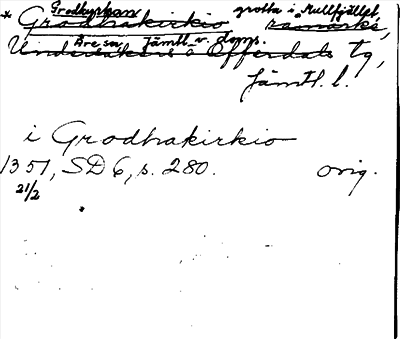 * Grodkyrkan grotta i Mullfjället,
Grodhakirkio råmärke,
Åre sn Jämtl. v. doms.
Undersåkers o Offerdals tg,
Jämtl. l.
i Grodhakirkio
1351, SD 6, s. 280. orig.
21/2